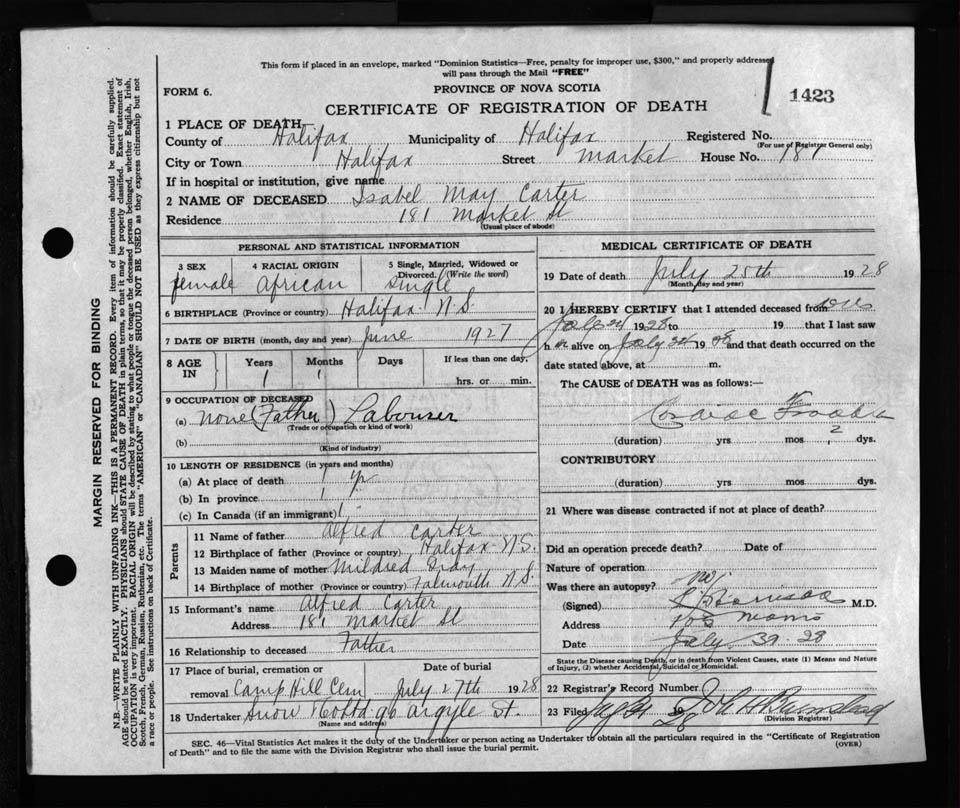 This form if placed in an envelope, marked "Dominion Statistics—Free, penalty for improper use, $300," and properly addressed
will pass through the Mail "FREE"
FORM 6.
PROVINCE OF NOVA SCOTIA
1423
CERTIFICATE OF REGISTRATION OF DEATH
1 PLACE OF DEATH
County of Halifax Municipality of Halifax Registered No.
(For use of Registrar General only)
City or Town Halifax Street Market House No. 181
If in hospital or institution, give name
2 NAME OF DECEASED Isabel May Carter
Residence 181 Market St
(Usual place of abode)
PERSONAL AND STATISTICAL INFORMATION
3 SEX 4 RACIAL ORIGIN 5 Single, Married, Widowed or Divorced. (Write the word)
female African Single
6 BIRTHPLACE (Province or country) Halifax N.S.
7 DATE OF BIRTH (month, day and year) June 1927
8 AGE IN Years Months Days If less than one day,
1 1 hrs. or min.
9 OCCUPATION OF DECEASED
(a) None (Father) Labourer
(Trade or occupation or kind of work)
(b)
(Kind of industry)
10 LENGTH OF RESIDENCE (in years and months)
(a) At place of death 1 yr
(b) In province 1
(c) In Canada (if an immigrant)
Parents
11 Name of father Alfred Carter
12 Birthplace of father (Province or country) Halifax N.S.
13 Maiden name of mother Mildred
14 Birthplace of mother (Province or country) Falmouth N.S.
15 Informant's name Alfred Carter
Address 181 Market St
16 Relationship to deceased Father
17 Place of burial, cremation or Date of burial
removal Camp Hill Cem July 27th 1928
18 Undertaker Snow 96 Argyle St.
(Name and address)
MEDICAL CERTIFICATE OF DEATH
19 Date of death July 25th 1928
(Month, day and year)
20 I HEREBY CERTIFY that I attended deceased from
1928 to 19 that I last saw
h alive on July 19 and that death occurred on the
date stated above, at m.
The CAUSE of DEATH was as follows:—
Cardiac
(duration) yrs mos 2 dys.
CONTRIBUTORY
(duration) yrs mos dys.
21 Where was disease contracted if not at place of death?
Did an operation precede death? Date of
Nature of operation
Was there an autopsy? no
(Signed) M.D.
Address
Date July 28
State the Disease causing Death, or in death from Violent Causes, state (1) Means and Nature
of Injury, (2) whether Accidental, Suicidal or Homicidal.
22 Registrar's Record Number
23 Filed 19
(Division Registrar)
SEC. 46—Vital Statistics Act makes it the duty of the Undertaker or person acting as Undertaker to obtain all the particulars required in the "Certificate of Registration
of Death" and to file the same with the Division Registrar who shall issue the burial permit.
(OVER)
MARGIN RESERVED FOR BINDING
N.B.—WRITE PLAINLY WITH UNFADING INK—THIS IS A PERMANENT RECORD. Every item of information should be carefully supplied.
AGE should be stated EXACTLY. PHYSICIANS should STATE CAUSE OF DEATH in plain terms, so that it may be properly classified. Exact statement of
OCCUPATION is very important. RACIAL ORIGIN will be described by stating to what people or tongue the deceased person belonged, whether English, Irish,
Scotch, French, German, Russian, Ruthenian, etc. The terms "AMERICAN" or "CANADIAN" SHOULD NOT BE USED as they express citizenship but not
a race or people. See instructions on back of Certificate.